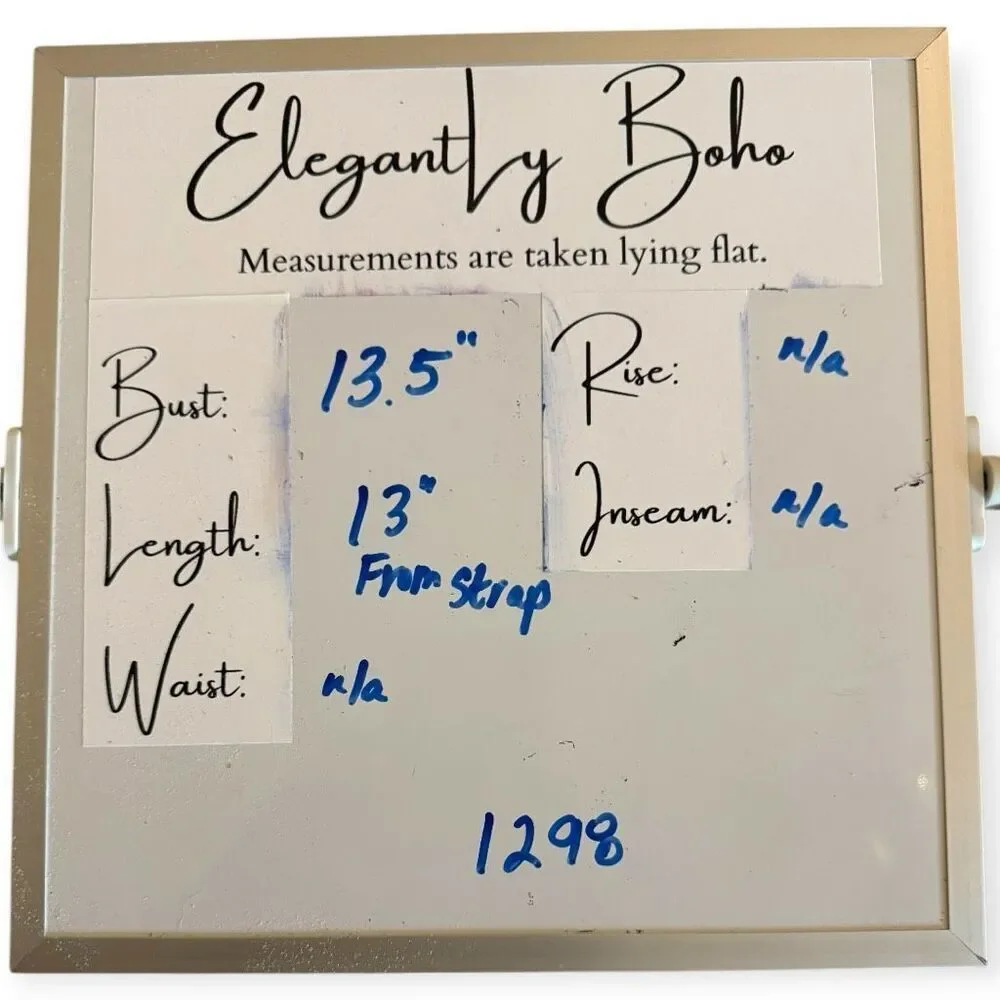 Elegantly Boho
Measurements are taken lying flat.
Bust: 13.5"
Length: 13"
From Strap
Waist: n/a
Rise: n/a
Inseam: n/a
1298